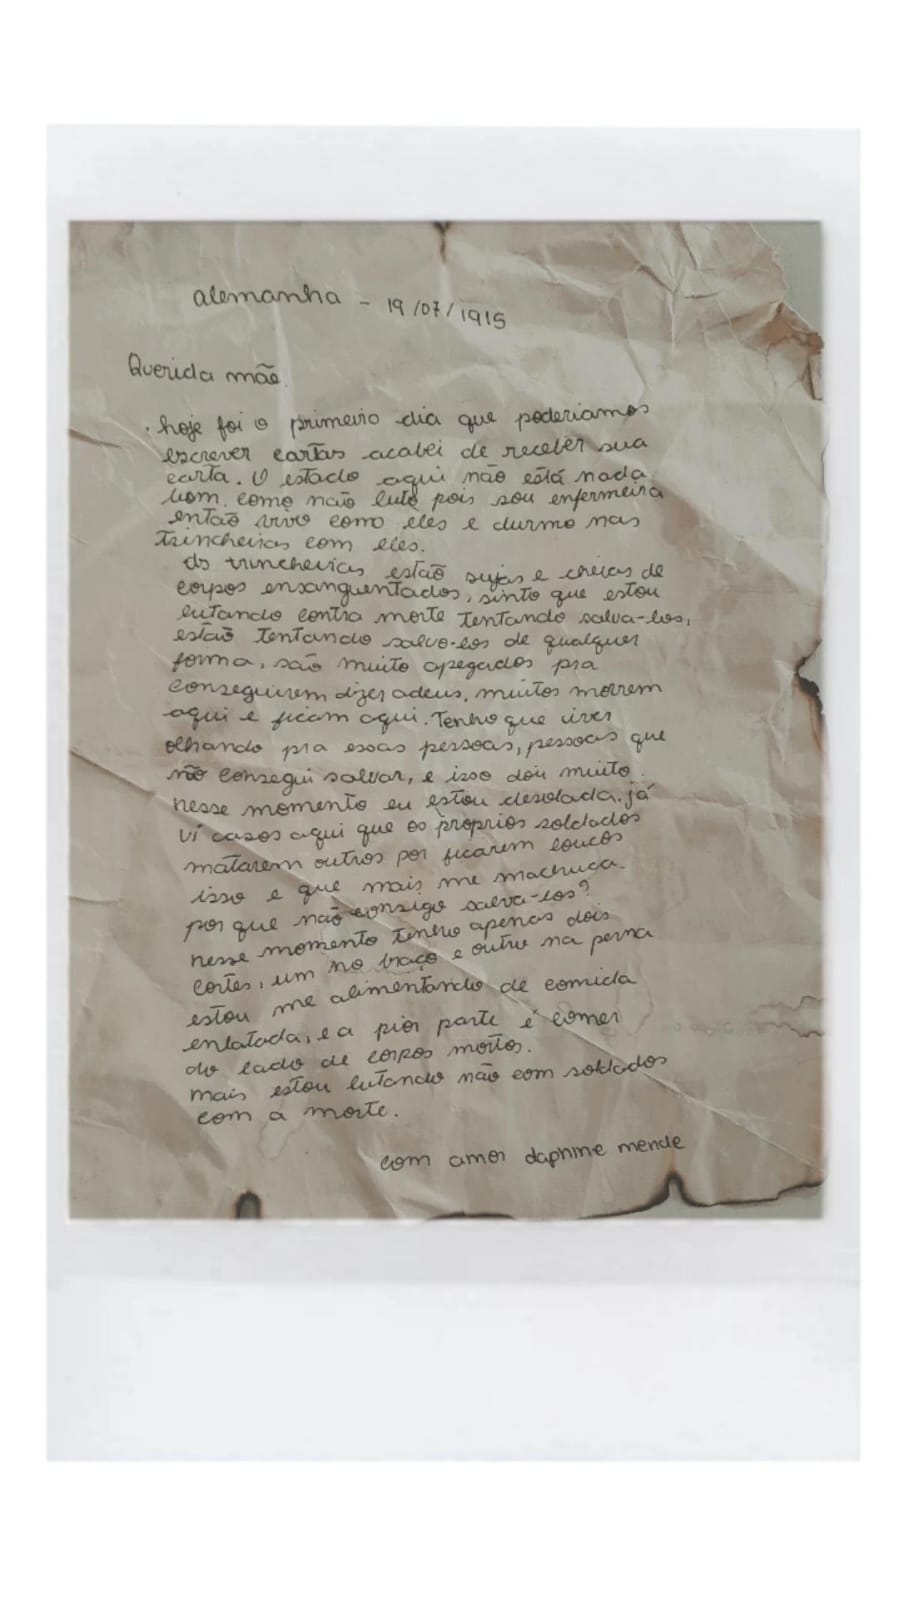 alemanha - 19/07/1915
Querida mãe
. hoje foi o primeiro dia que poderiamos
escrever cartas acabei de receber sua
carta. O estado aqui não está nada
bom. como não luto pois sou enfermeira
então vivo como eles e durmo nas
trincheiras com eles.
As trincheiras estão sujas e cheias de
corpos ensanguentados, sinto que estou
lutando contra morte tentando salva-los,
estão tentando salvo-los de qualquer
forma, são muito apegados pra
conseguirem dizer adeus. muitos morrem
aqui e ficam aqui. Tenho que viver
olhando pra essas pessoas, pessoas que
não consegui salvar, e isso dói muito.
nesse momento eu estou desolada. já
vi casos aqui que os próprios soldados
matarem outros por ficarem loucos
isso e que mais me machuca.
por que não consigo salva-los?
nesse momento tenho apenas dois
cortes, um no braço e outro na perna
estou me alimentando de comida
enlatada, e a pior parte é comer
do lado de corpos mortos.
mais estou lutando não com soldados
com a morte.
com amor daphine mende